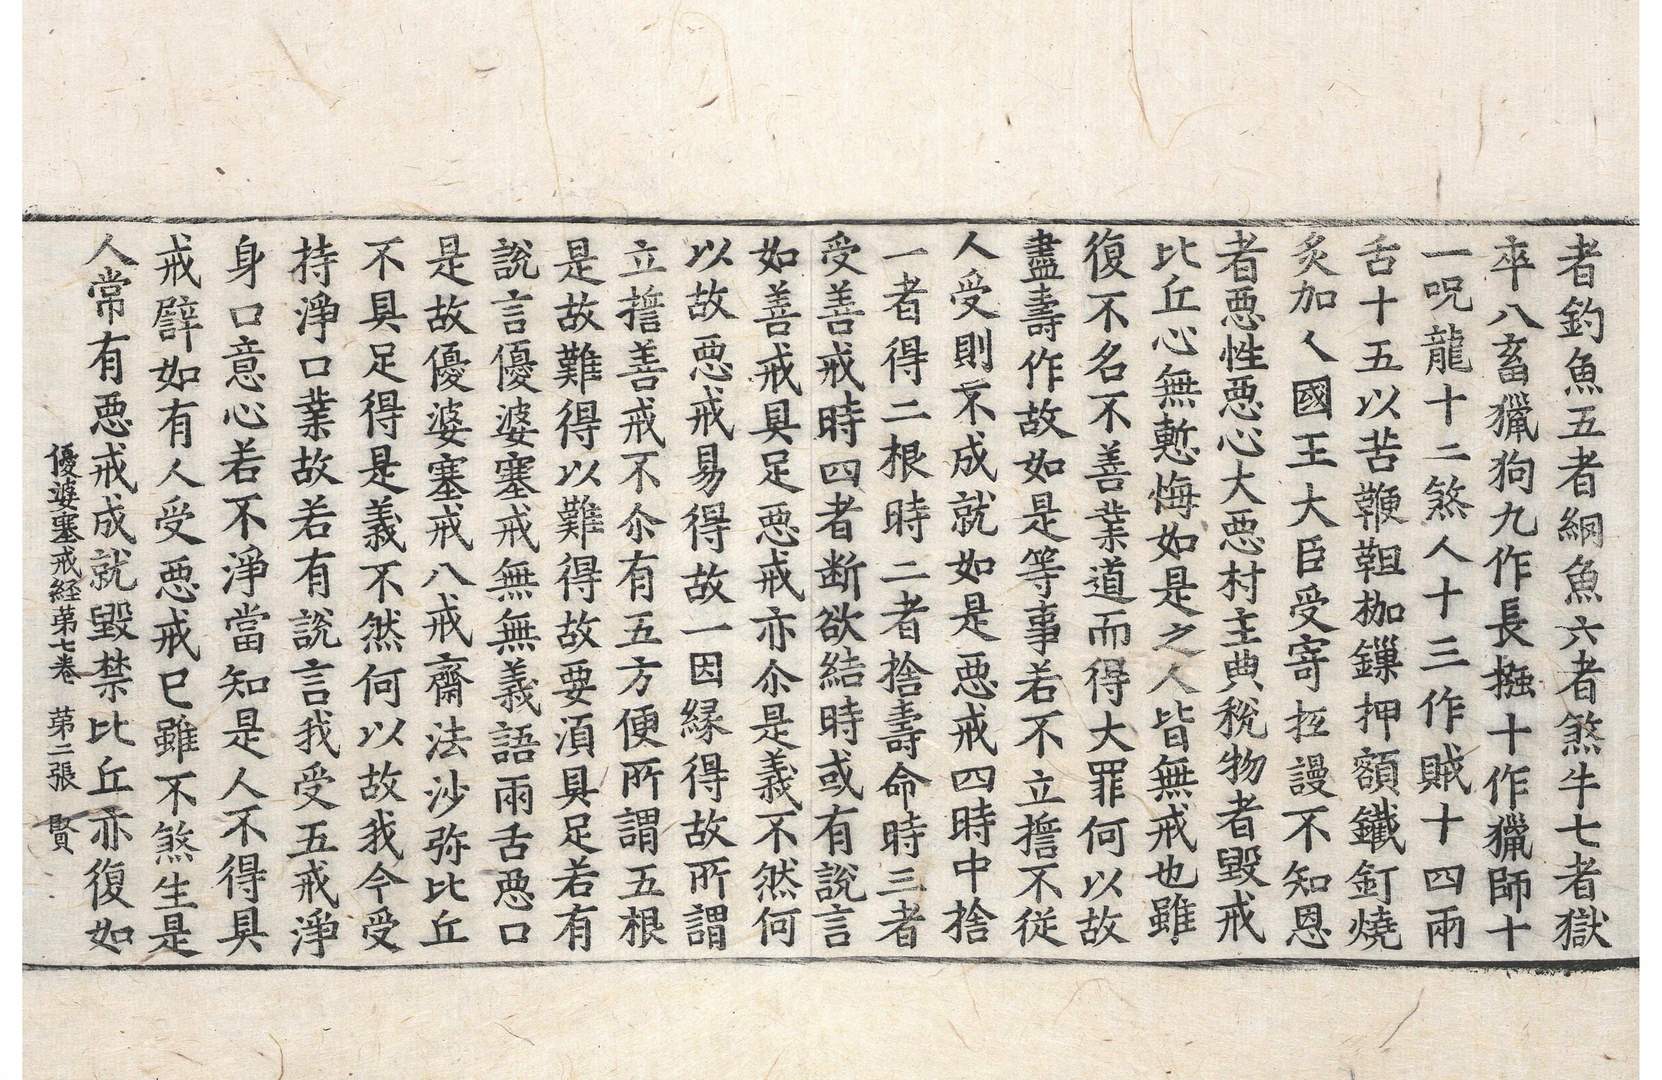 者釣魚五者網魚六者煞牛七者獄
卒八畜獵狗九作長摾十作獵師十
一呪龍十二煞人十三作賊十四兩
舌十五以苦鞭靻枷鏁押額鐵釘燒
炙加人國王大臣受寄抂謾不知恩
者惡性惡心大惡村主典稅物者毀戒
比丘心無慙悔如是之人皆無戒也雖
復不名不善業道而得大罪何以故
盡壽作故如是等事若不立誓不從
人受則不成就如是惡戒四時中捨
一者得二根時二者捨壽命時三者
受善戒時四者断欲結時或有說言
如善戒具足惡戒亦尒是義不然何
以故惡戒易得故一因緣得故所謂
立誓善戒不尒有五方便所謂五根
是故難得以難得故要須具足若有
說言優婆塞戒無無義語兩舌惡口
是故優婆塞戒八戒齋法沙弥比丘
不具足得是義不然何以故我今受
持淨口業故若有說言我受五戒淨
身口意心若不淨當知是人不得具
戒譬如有人受惡戒已雖不煞生是
人常有惡戒成就毀禁比丘亦復如
優婆塞戒経苐七卷 苐二張 賢